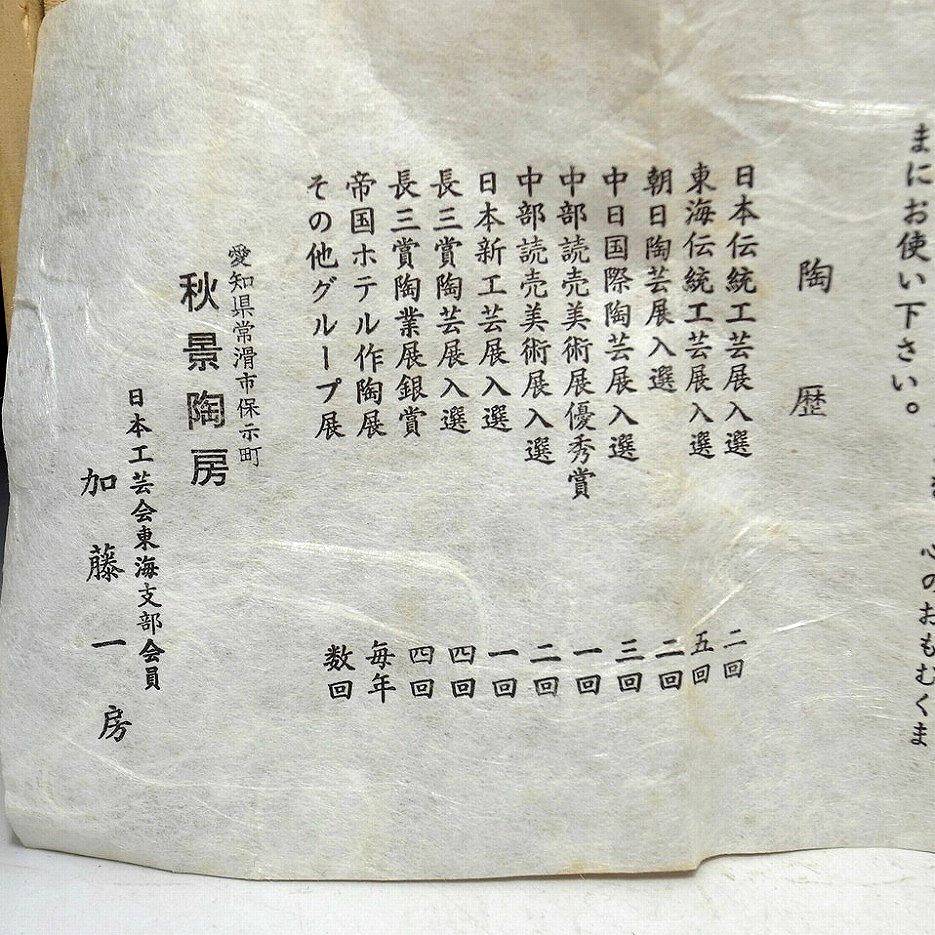 心のおもむくま
まにお使い下さい。
陶歴
日本伝統工芸展入選 二回
東海伝統工芸展入選 五回
朝日陶芸展入選 二回
中日国際陶芸展入選 三回
中部読売美術展優秀賞 一回
中部読売美術展入選 二回
日本新工芸展入選 一回
長三賞陶芸展入選 四回
長三賞陶業展銀賞 四回
帝国ホテル作陶展 毎年
その他グループ展 数回
愛知県常滑市保示町
秋景陶房
日本工芸会東海支部会員
加藤一房